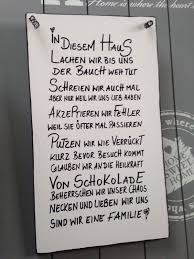 Home is where the heart
In diesem Haus
Lachen wir bis uns
der Bauch weh tut
Schreien wir auch mal
aber nur weil wir uns lieb haben
Akzeptieren wir Fehler
weil sie öfter mal passieren
Putzen wir wie verrückt
kurz bevor Besuch kommt
Glauben wir an die Heilkraft
von Schokolade
Beherrschen wir unser Chaos
Necken und lieben wir uns
sind wir eine Familie